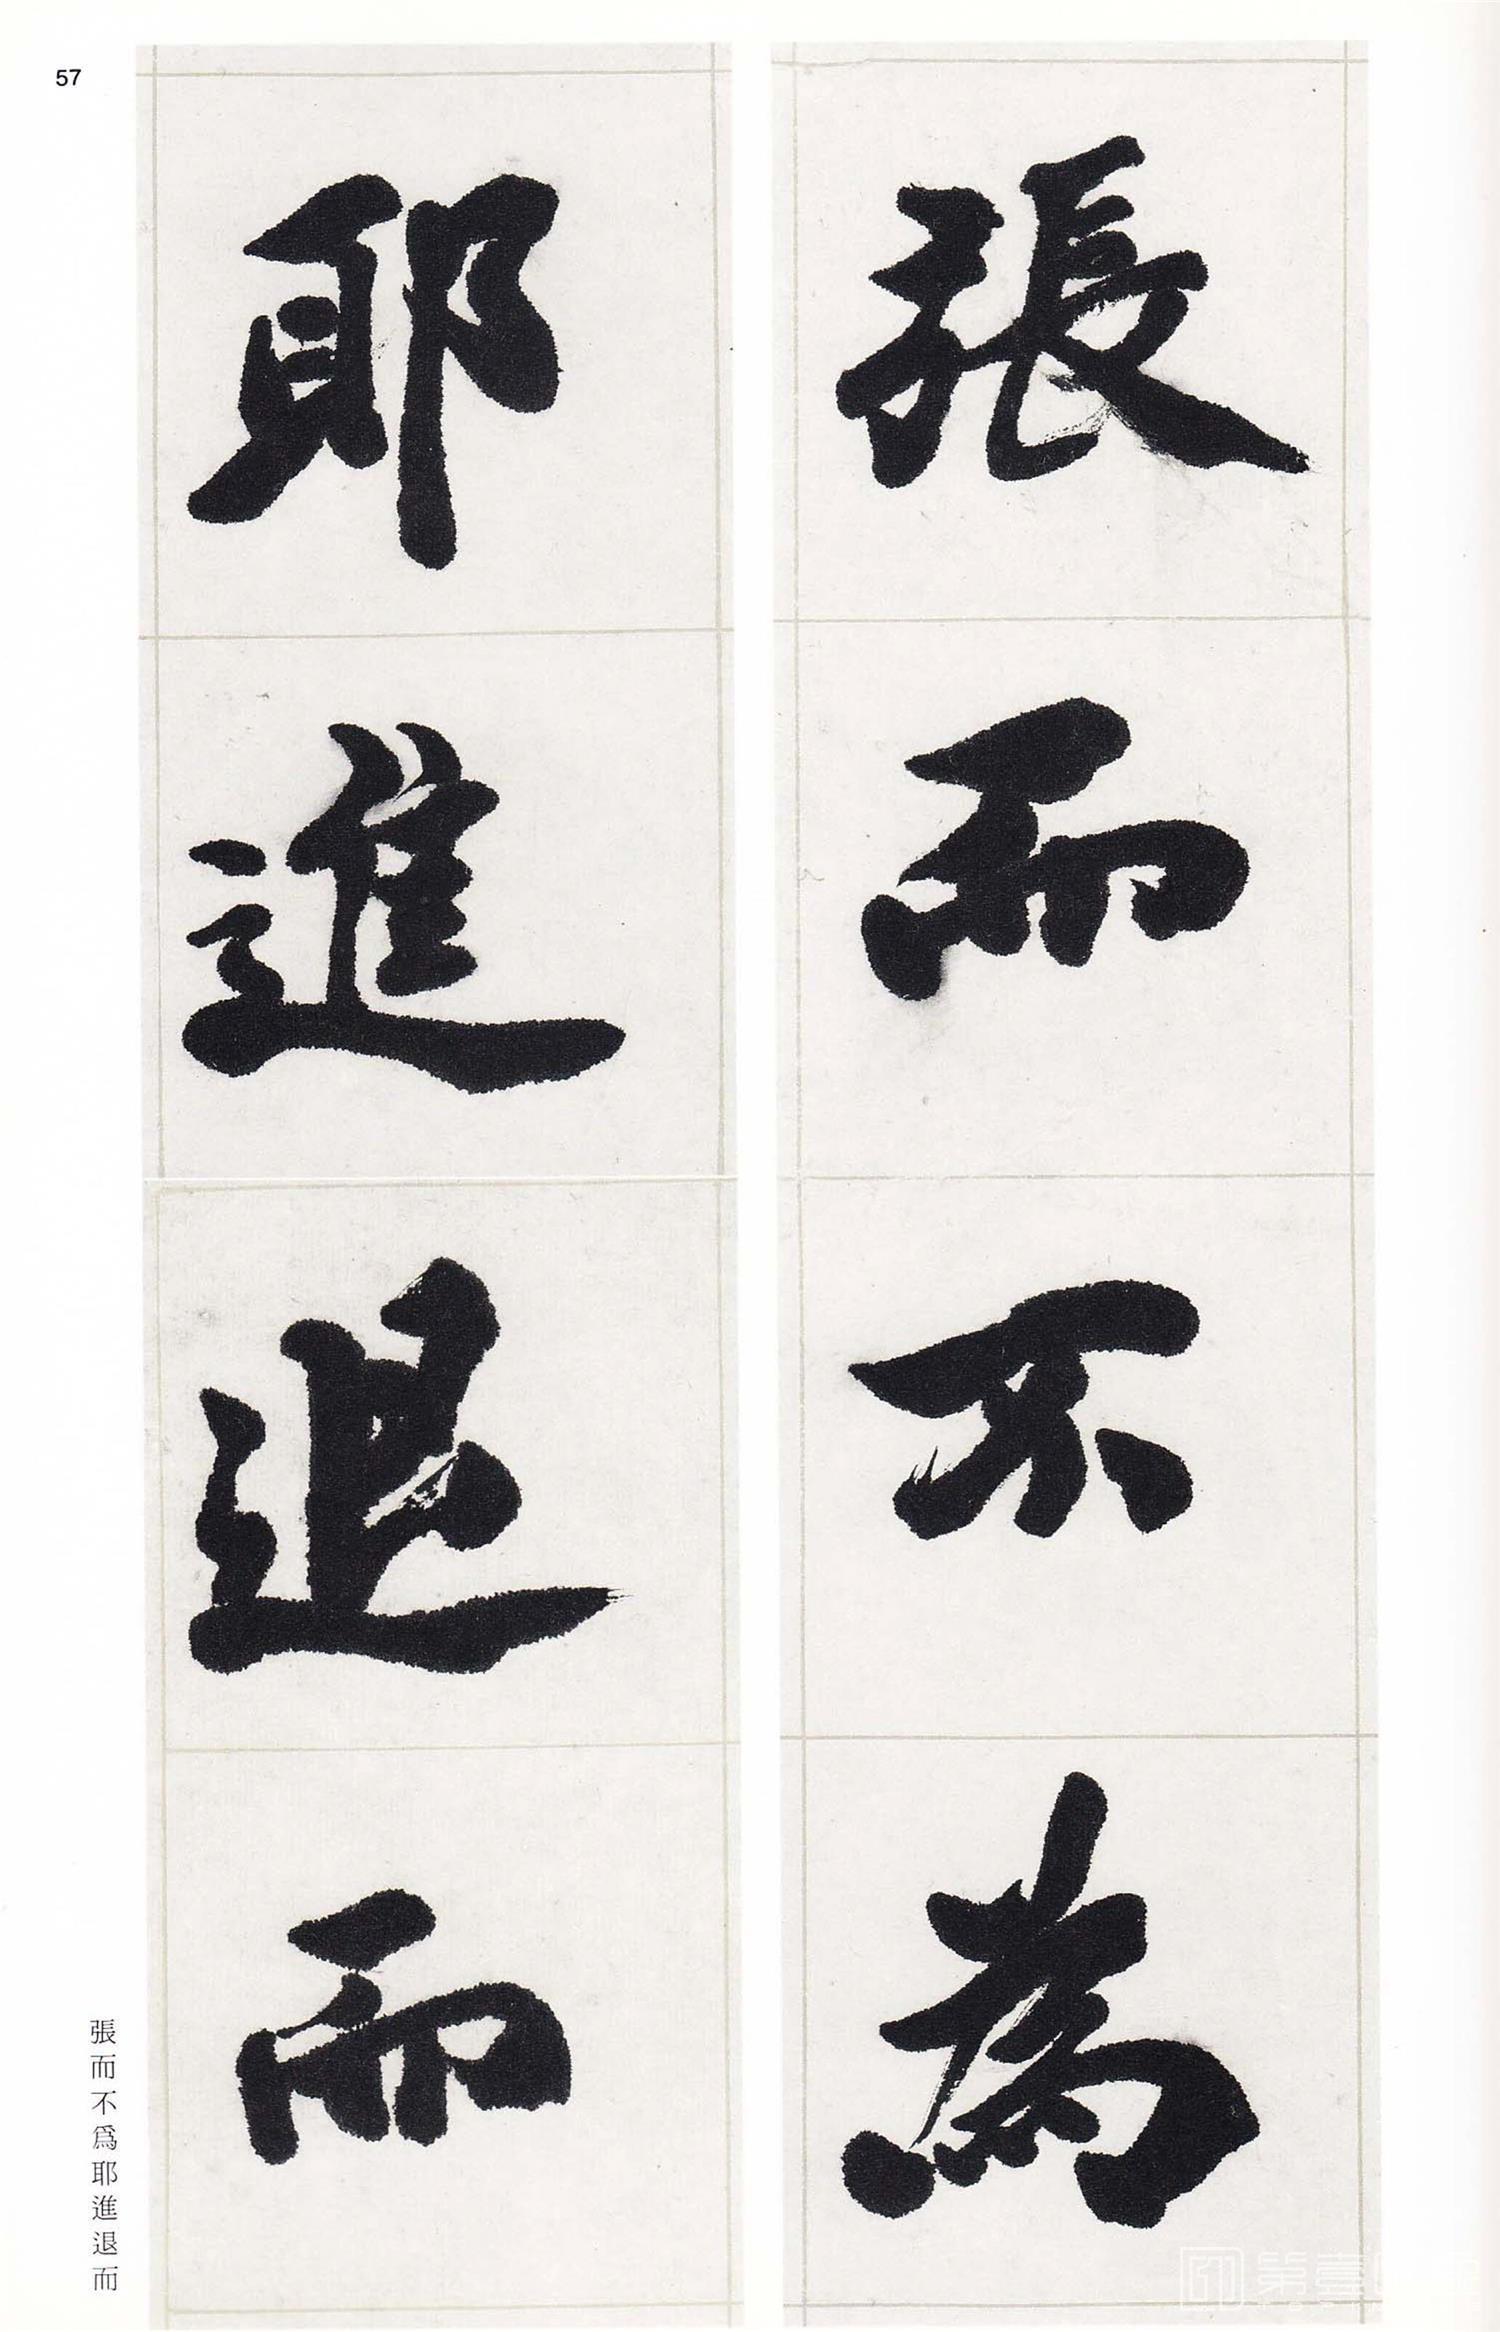 57
張而不為
耶進退而
張而不爲耶進退而